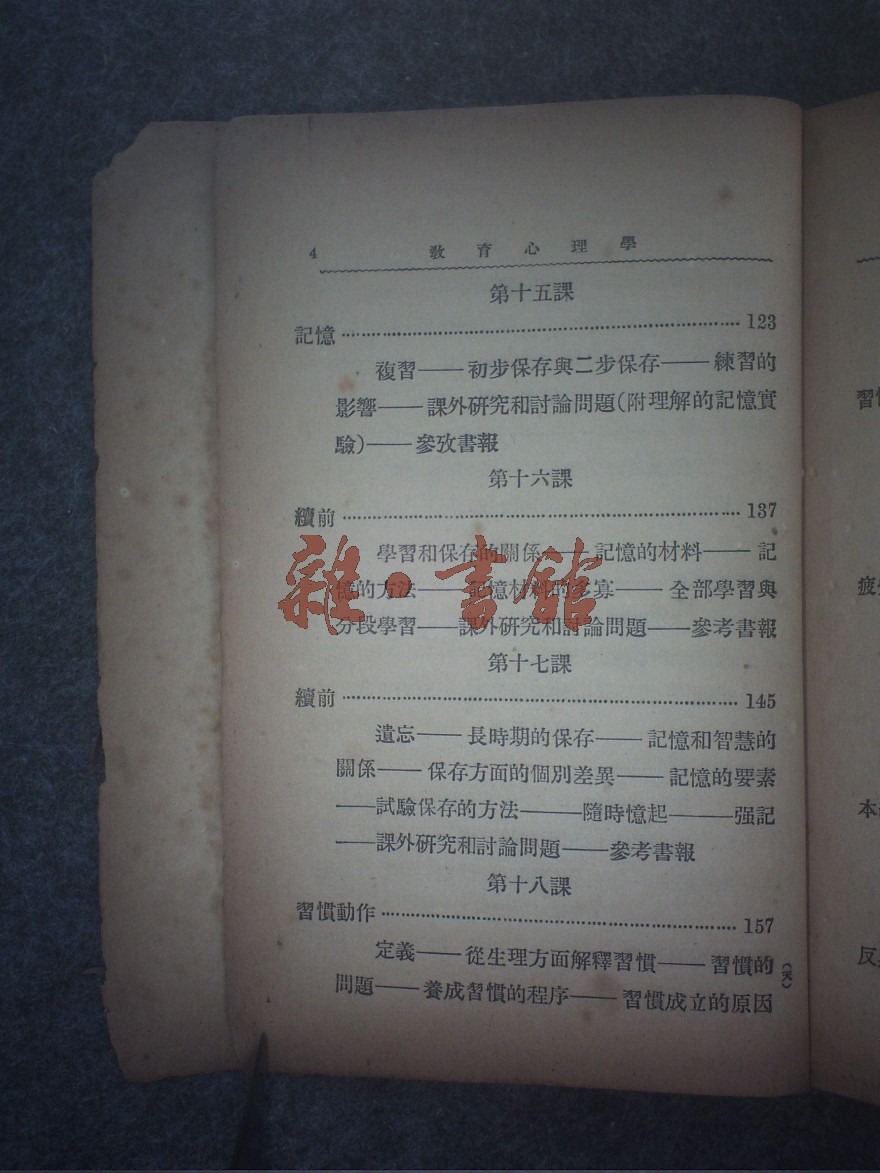 4 教育心理學
第十五課
記憶 123
複習——初步保存與二步保存——練習的
影響——課外研究和討論問題(附理解的記憶實
驗)——參攷書報
第十六課
續前 137
學習和保存的關係——記憶的材料——記
憶的方法——記憶材料的多寡——全部學習與
分段學習——課外研究和討論問題——參考書報
雜·書館
第十七課
續前 145
遺忘——長時期的保存——記憶和智慧的
關係——保存方面的個別差異——記憶的要素
——試驗保存的方法——隨時憶起——强記
——課外研究和討論問題——參考書報
第十八課
習慣動作 157
定義——從生理方面解釋習慣——習慣的
問題——養成習慣的程序——習慣成立的原因
(天)
習
疲
本
反